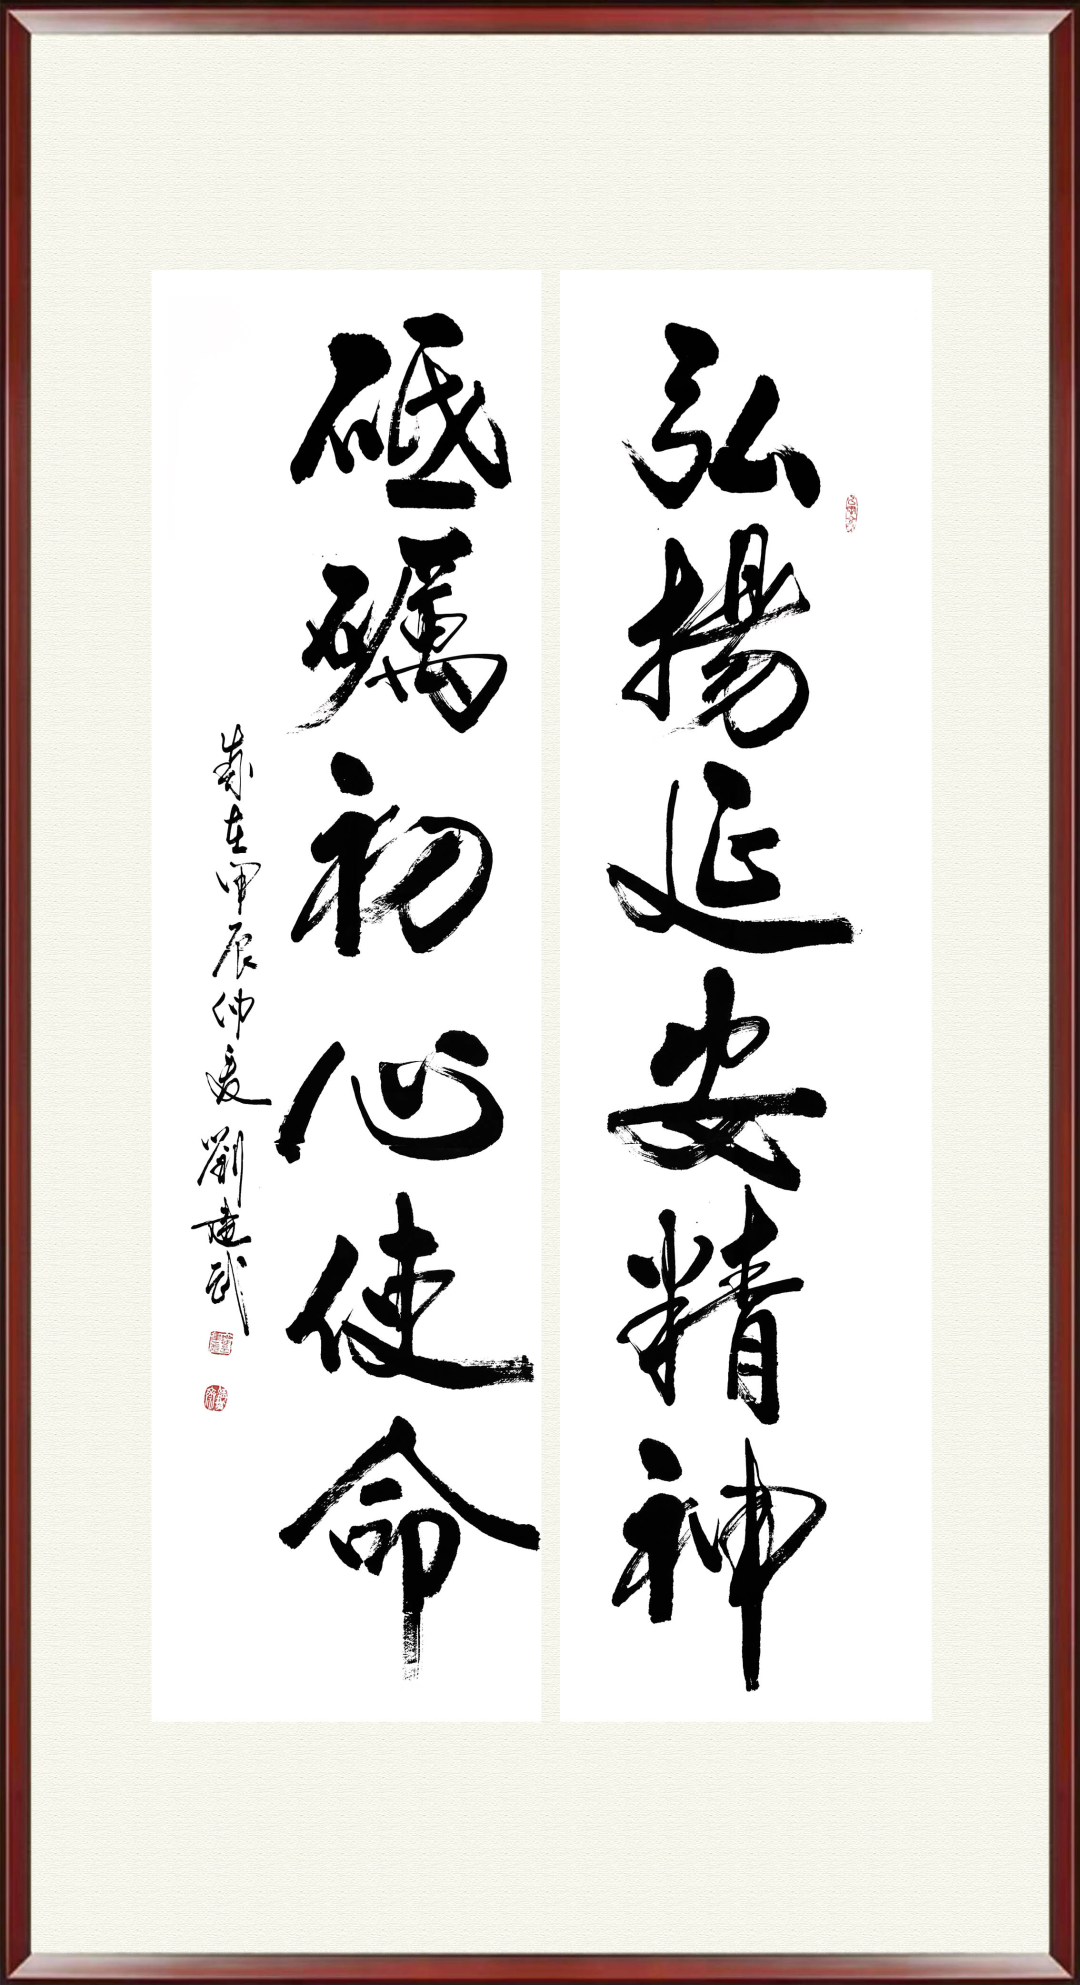 弘揚延安精神
砥礪初心使命
歲在甲辰仲夏劉建武